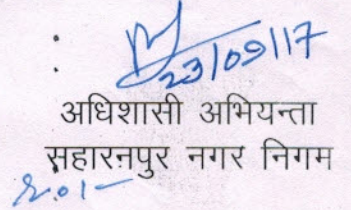 23/09/17
अधिशासी अभियन्ता
सहारनपुर नगर निगम